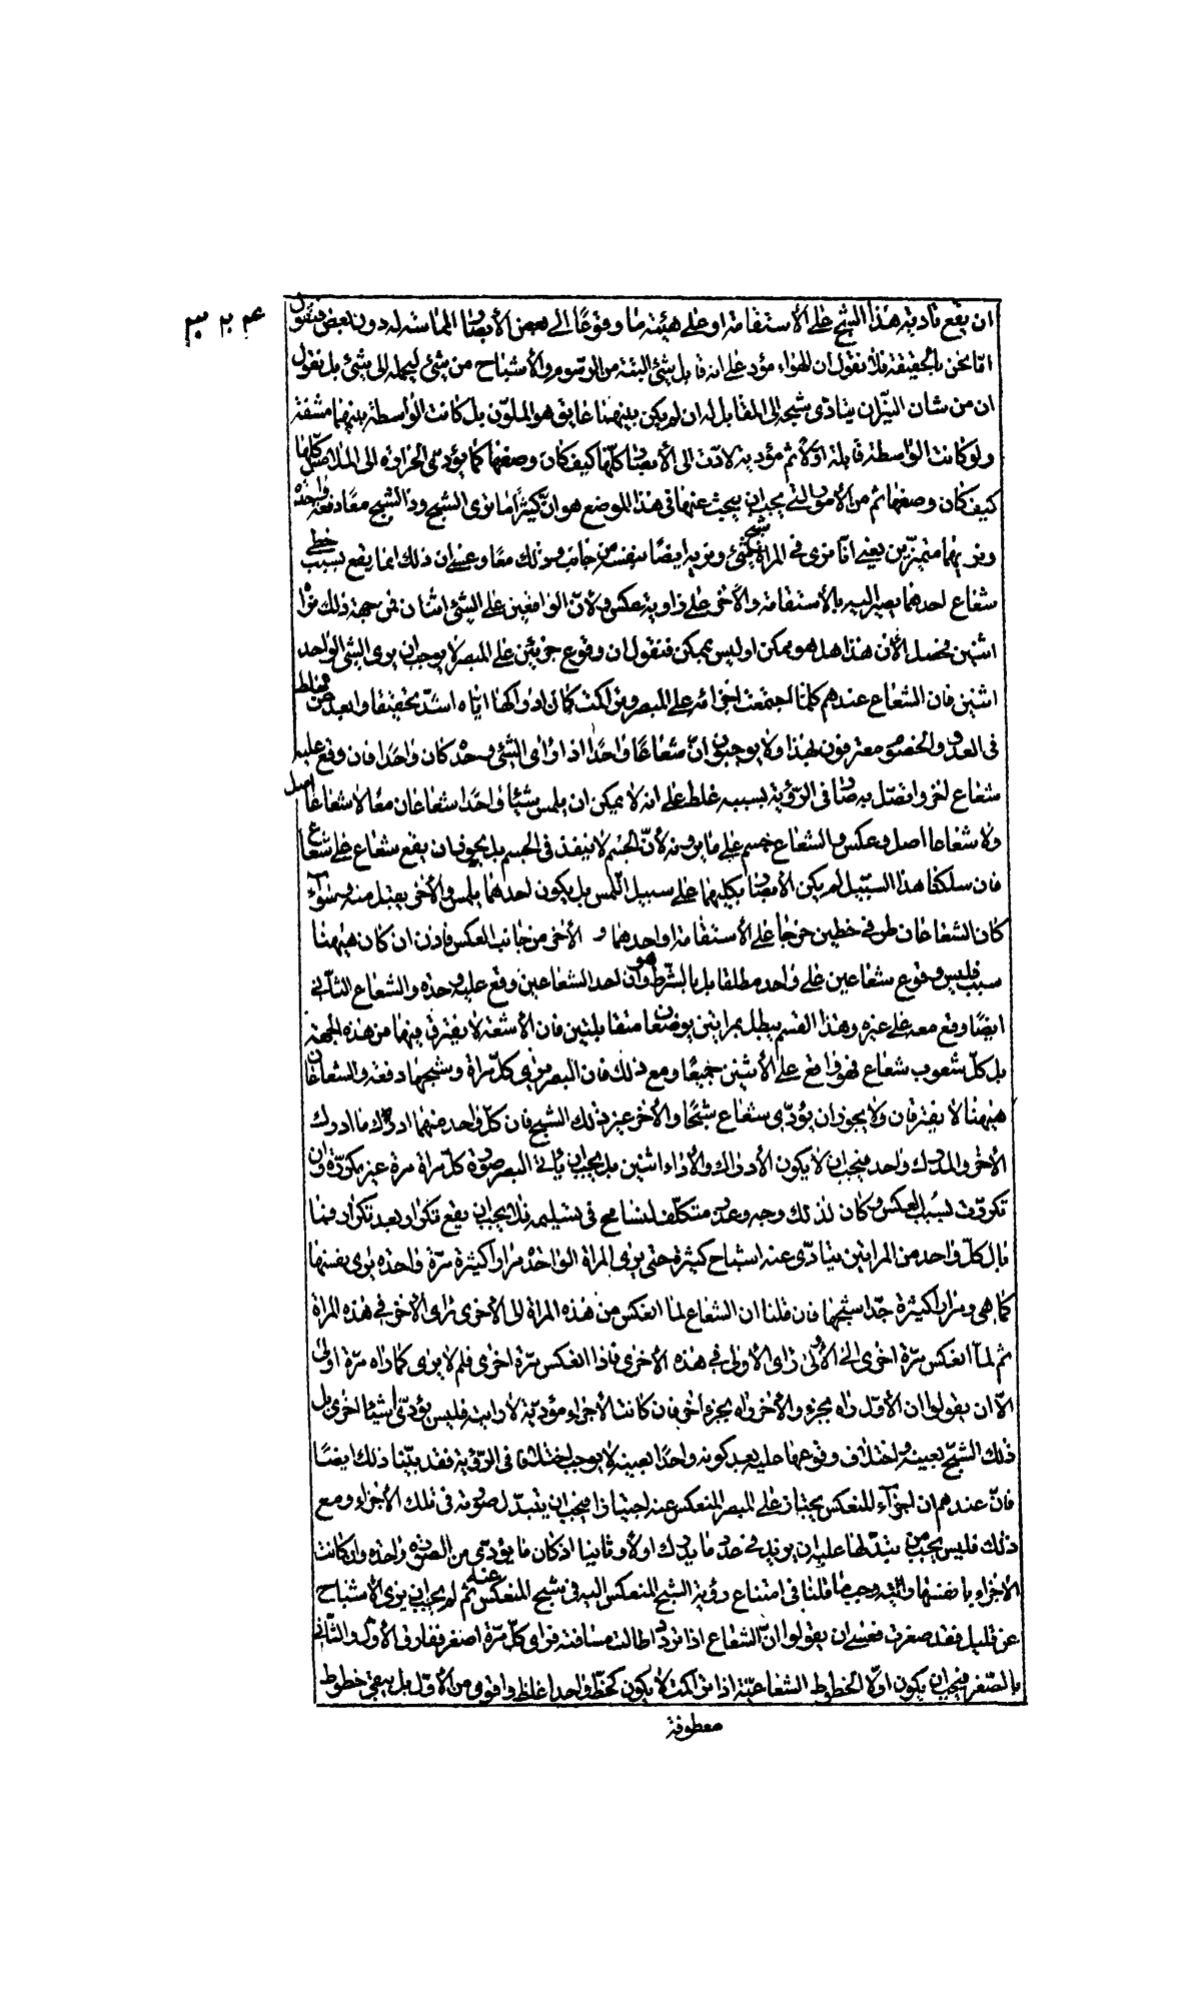 ان يقع تادية هذا الشبح على الاستقامة او على هيئة ما وقوعا الى بعض الابصار المماسة له دون بعض فنقول
اما نحن بالحقيقة فلا نقول ان الهواء مؤد على انه قابل شئ البتة من الرسوم والاشباح من شئ ليحمله الى شئ بل نقول
ان من شان النير ان يتادى شبحه الى المقابل له ان لم يكن بينهما عايق هو الملون بل كانت الواسطة بينهما مشفة
ولو كانت الواسطة قابلة اولا ثم مؤدية لادت الى الابصار كلها كيف كان وضعها كما يؤدى الحرارة الى الملامس كلها
كيف كان وضعها ثم من الامور التى يجب ان يبحث عنها فى هذا الموضع هو ان كثيرا ما نرى الشبح وذا الشبح معا دفعة واحدة
ونريهما متميزين يعنى انا نرى فى المراة شبح شئ ونريه ايضا بنفسه من جانب وذلك معا وعسى ان ذلك انما يقع بسبب خطى
شعاع احدهما يصير اليه بالاستقامة والاخر على زاوية عكس ولان الواقعين على الشئ اثنان فمن جهة ذلك نراه
اثنين فنحصل الان هذا هل هو ممكن او ليس بممكن فنقول ان وقوع جزئين على المبصر لا يوجب ان يرى الشئ الواحد
اثنين فان الشعاع عندهم كلما اجتمعت اجزائه على المبصر وتراكمت كان ادراكها اياه اشد تحقيقا وابعد من الغلط
فى العدد والخصوص معترفون بهذا ولا يوجبون ان شعاعا واحدا اذا راى الشئ وحده كان واحدا فان وقع عليه
شعاع اخر واتصل به صار فى الرؤية بسببه غلط على انه لا يمكن ان يلمس شيئا واحدا شعاعان معا لا شعاعا اصل
ولا شعاعا اصل وعكس والشعاع جسم على ما يرونه لان الجسم لا ينفذ فى الجسم بل يجوز ان يقع شعاع على شعاع
فان سلكنا هذا السبيل لم يكن الابصار بكليهما على سبيل اللمس بل يكون احدهما يلمس والاخر يقبل منه وسواء
كان الشعاعان طرفى خطين خرجا على الاستقامة او احدهما و الاخر من جانب العكس فاذن ان كان هيهنا
سبب فليس وقوع شعاعين على واحد مطلقا بل بالشرط وهو ان احد الشعاعين وقع عليه وحده والشعاع الثانى
ايضا وقع معه على غيره وهذا القسم يبطل بمراتين يوضعان متقابلتين فان الاشعة لا يفترق فيهما من هذه الجهة
بل كل شعوب شعاع فهو واقع على الاثنين جميعا ومع ذلك فان البصر يرى كل مراة وشبحها دفعة والشعاعان
هيهنا لا يفترقان ولا يجوز ان يؤدى شعاع شبحا والاخر غير ذلك الشبح فان كل واحد منهما ادرك ما ادرك
الاخر والمدرك واحد فيجب ان لا يكون الادراك والاداء اثنين بل يجب ان يأتى البصر صورة كل مراة مرة غير مكررة وان
تكررت بسبب العكس وكان لذلك وجه وعذر متكلف لنتسامح فى تسليمه فلا يجب ان يقع تكرار بعد تكرار فما
بال كل واحد من المراتين يتادى عنه اشباح كثيرة حتى يرى المراة الواحدة مرارا كثيرة مرة واحدة يرى بنفسها
كما هى ومرارا كثيرة جدا شبحها فان قلنا ان الشعاع لما انعكس من هذه المراة الى الاخرى راى الاخرى فى هذه المراة
ثم لما انعكس مرة اخرى الى الاولى راى الاولى فى هذه الاخرى فاذا انعكس مرة اخرى فلم لا يرى كما راه مرة اولى
الا ان يقولوا ان الاول راه بجزء والاخر راه بجزء اخر فان كانت الاجزاء مؤدية لا رائية فليس يؤدى شيئا اخر بل
ذلك الشبح بعينه واختلاف وقوعها عليه بعد كونه واحدا بعينه لا يوجب اختلافا فى الرؤية فقد بينا ذلك ايضا
فان عندهم ان اجزاء المنعكس يجتاز على المبصر المنعكس عنه اجتيازا فيجب ان يتبدل صورته فى تلك الاجزاء ومع
ذلك فليس يجب من تبدلها عليه ان يزيد فى عدد ما يدرك اولا وثانيا اذ كان ما يؤدى من الصورة واحدة وان كانت
الاجزاء بانفسها رائية وجب ما قلنا فى امتناع رؤية الشبح المنعكس اليه فى شبح المنعكس عنه ثم لم يجب ان يرى الاشباح
عن قليل فقد صغرت فعسى ان يقولوا ان الشعاع اذا تردد طالت مسافته فراى كل مرة اصغر ففارق الاول والثانى
بالصغر فيجب ان يكون اولا الخطوط الشعاعية اذا تراكمت لا يكون كخط واحد اغلظ واقوى من الاول بل يبقى خطوط
معطوفة